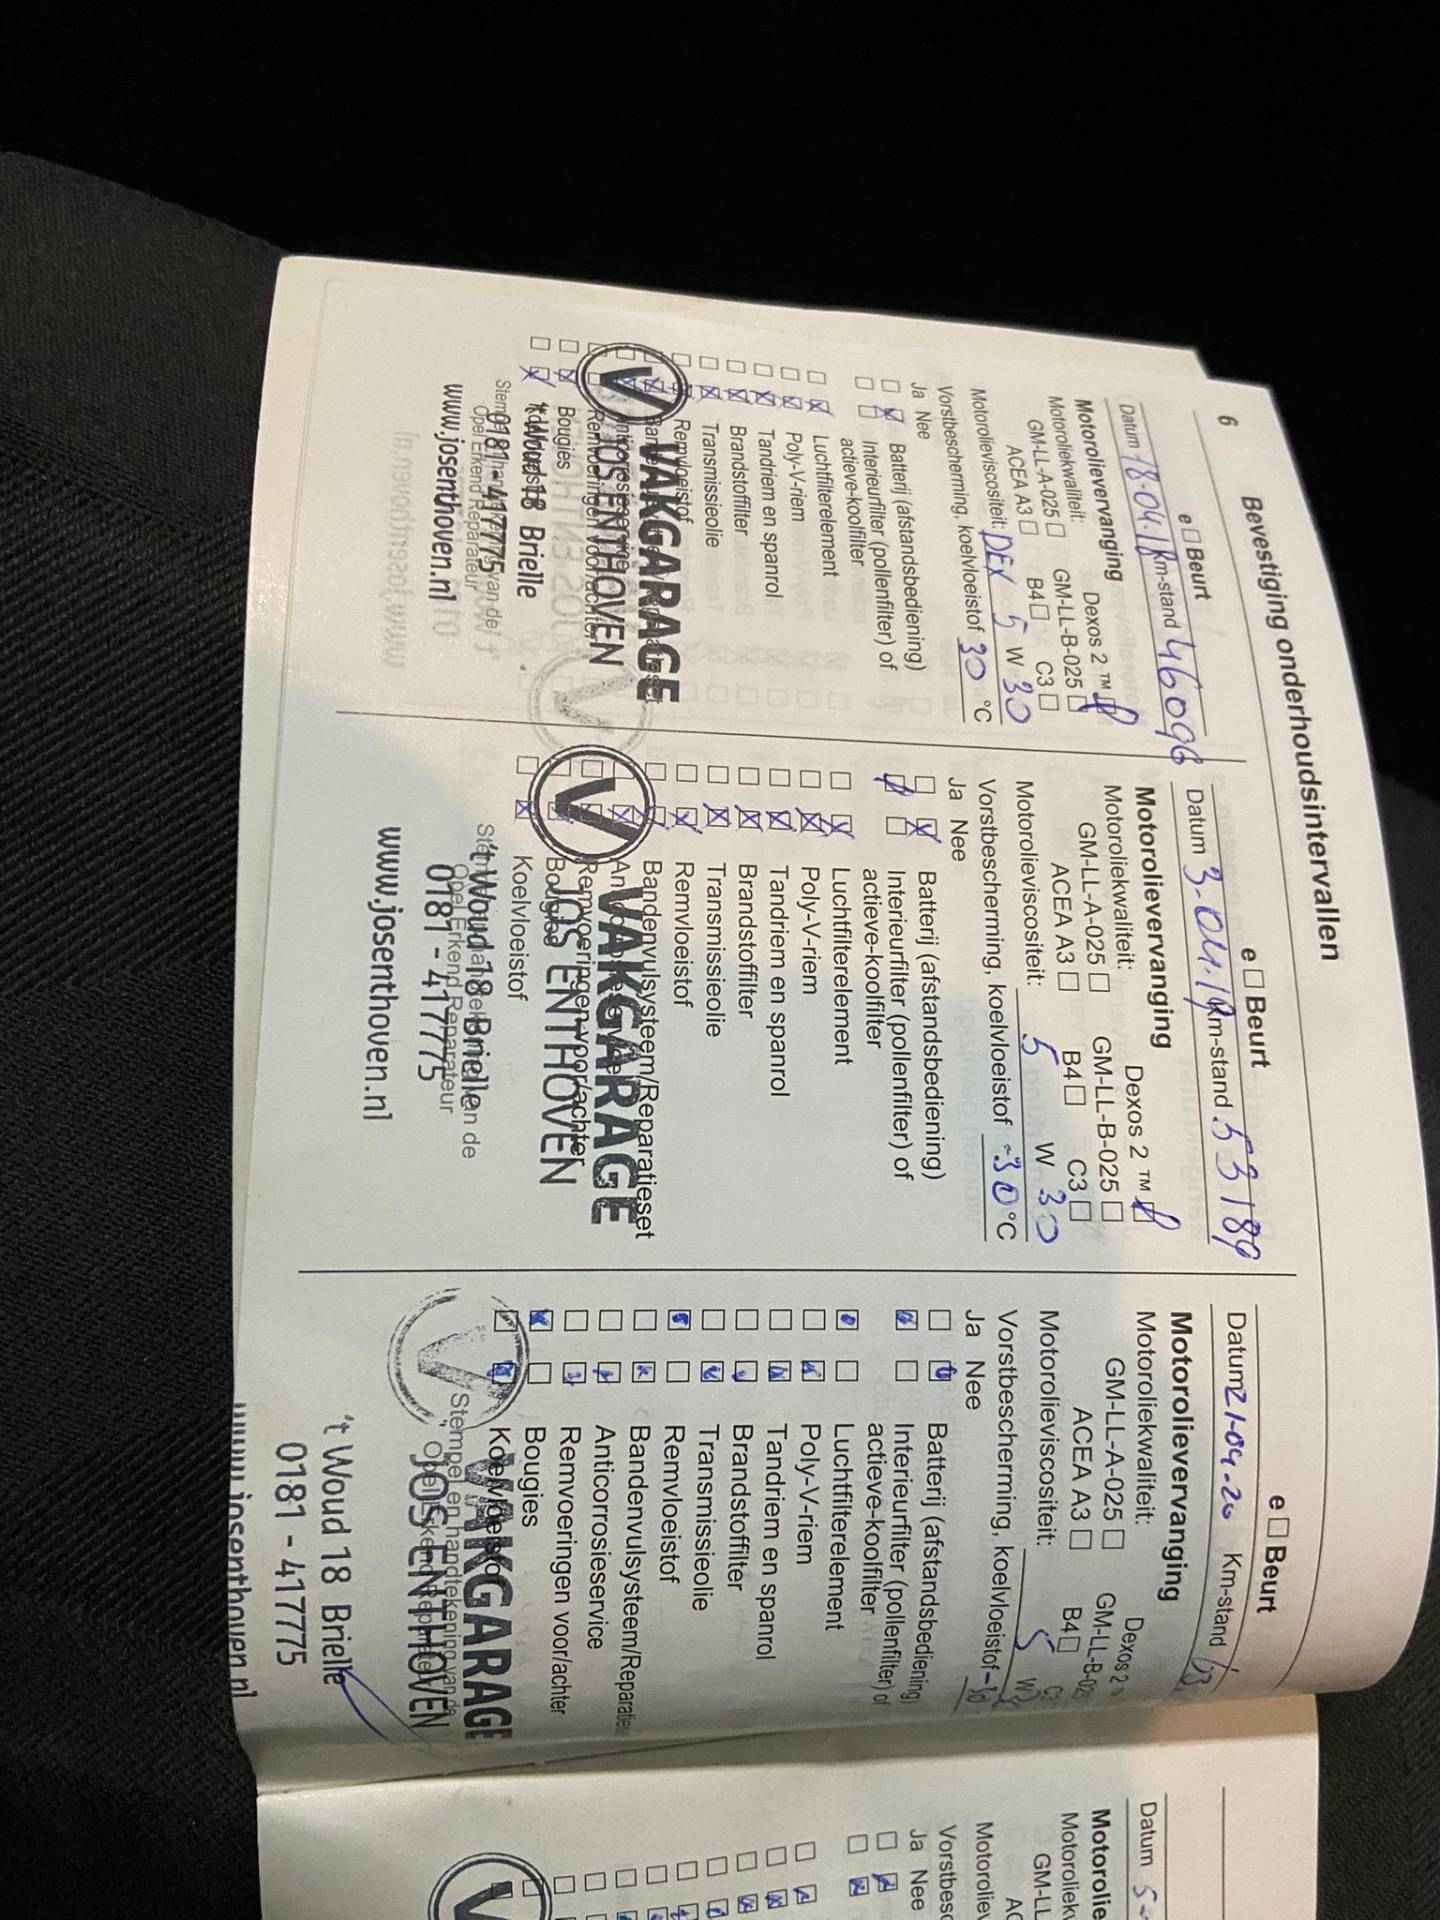 6
Bevestiging onderhoudsintervallen
e Beurt
Datum 18-04-18 Km-stand 46096
Motorolievervanging
Motoroliekwaliteit: Dexos 2 ™
GM-LL-A-025 GM-LL-B-025
ACEA A3 B4 C3
Motorolieviscositeit: DEX 5 W 30
Vorstbescherming, koelvloeistof 30 °C
Ja Nee
Batterij (afstandsbediening)
Interieurfilter (pollenfilter) of
actieve-koolfilter
Luchtfilterelement
Poly-V-riem
Tandriem en spanrol
Brandstoffilter
Transmissieolie
Remvloeistof
Remvoeringen voor/achter
Bougies
VAKGARAGE
JOS ENTHOVEN
't Woud 18 Brielle
0181 - 417775
Opel Erkend Reparateur
www.josenthoven.nl
e Beurt
Datum 3-04-19 Km-stand 53189
Motorolievervanging
Motoroliekwaliteit: Dexos 2 ™
GM-LL-A-025 GM-LL-B-025
ACEA A3 B4 C3
Motorolieviscositeit: 5 W 30
Vorstbescherming, koelvloeistof -30 °C
Ja Nee
Batterij (afstandsbediening)
Interieurfilter (pollenfilter) of
actieve-koolfilter
Luchtfilterelement
Poly-V-riem
Tandriem en spanrol
Brandstoffilter
Transmissieolie
Remvloeistof
Bandenvulsysteem/Reparatieset
Remvoeringen voor/achter
Bougies
Koelvloeistof
VAKGARAGE
JOS ENTHOVEN
't Woud 18 Brielle
0181 - 417775
Opel Erkend Reparateur
www.josenthoven.nl
e Beurt
Datum 21-04-20 Km-stand
Motorolievervanging
Motoroliekwaliteit: Dexos 2
GM-LL-A-025 GM-LL-B-025
ACEA A3 B4
Motorolieviscositeit: 5 W
Vorstbescherming, koelvloeistof -30
Ja Nee
Batterij (afstandsbediening)
Interieurfilter (pollenfilter) of
actieve-koolfilter
Luchtfilterelement
Poly-V-riem
Tandriem en spanrol
Brandstoffilter
Transmissieolie
Remvloeistof
Bandenvulsysteem/Reparaties
Anticorrosieservice
Remvoeringen voor/achter
Bougies
Koelvloeistof
Stempel en handtekening van de
Opel Erkend Reparateur
VAKGARAGE
JOS ENTHOVEN
't Woud 18 Brielle
0181 - 417775
www.josenthoven.nl
Datum 5-
Motorolie
Motoroliekw
GM-LL
AC
Motoroliev
Vorstbesc
Ja Nee